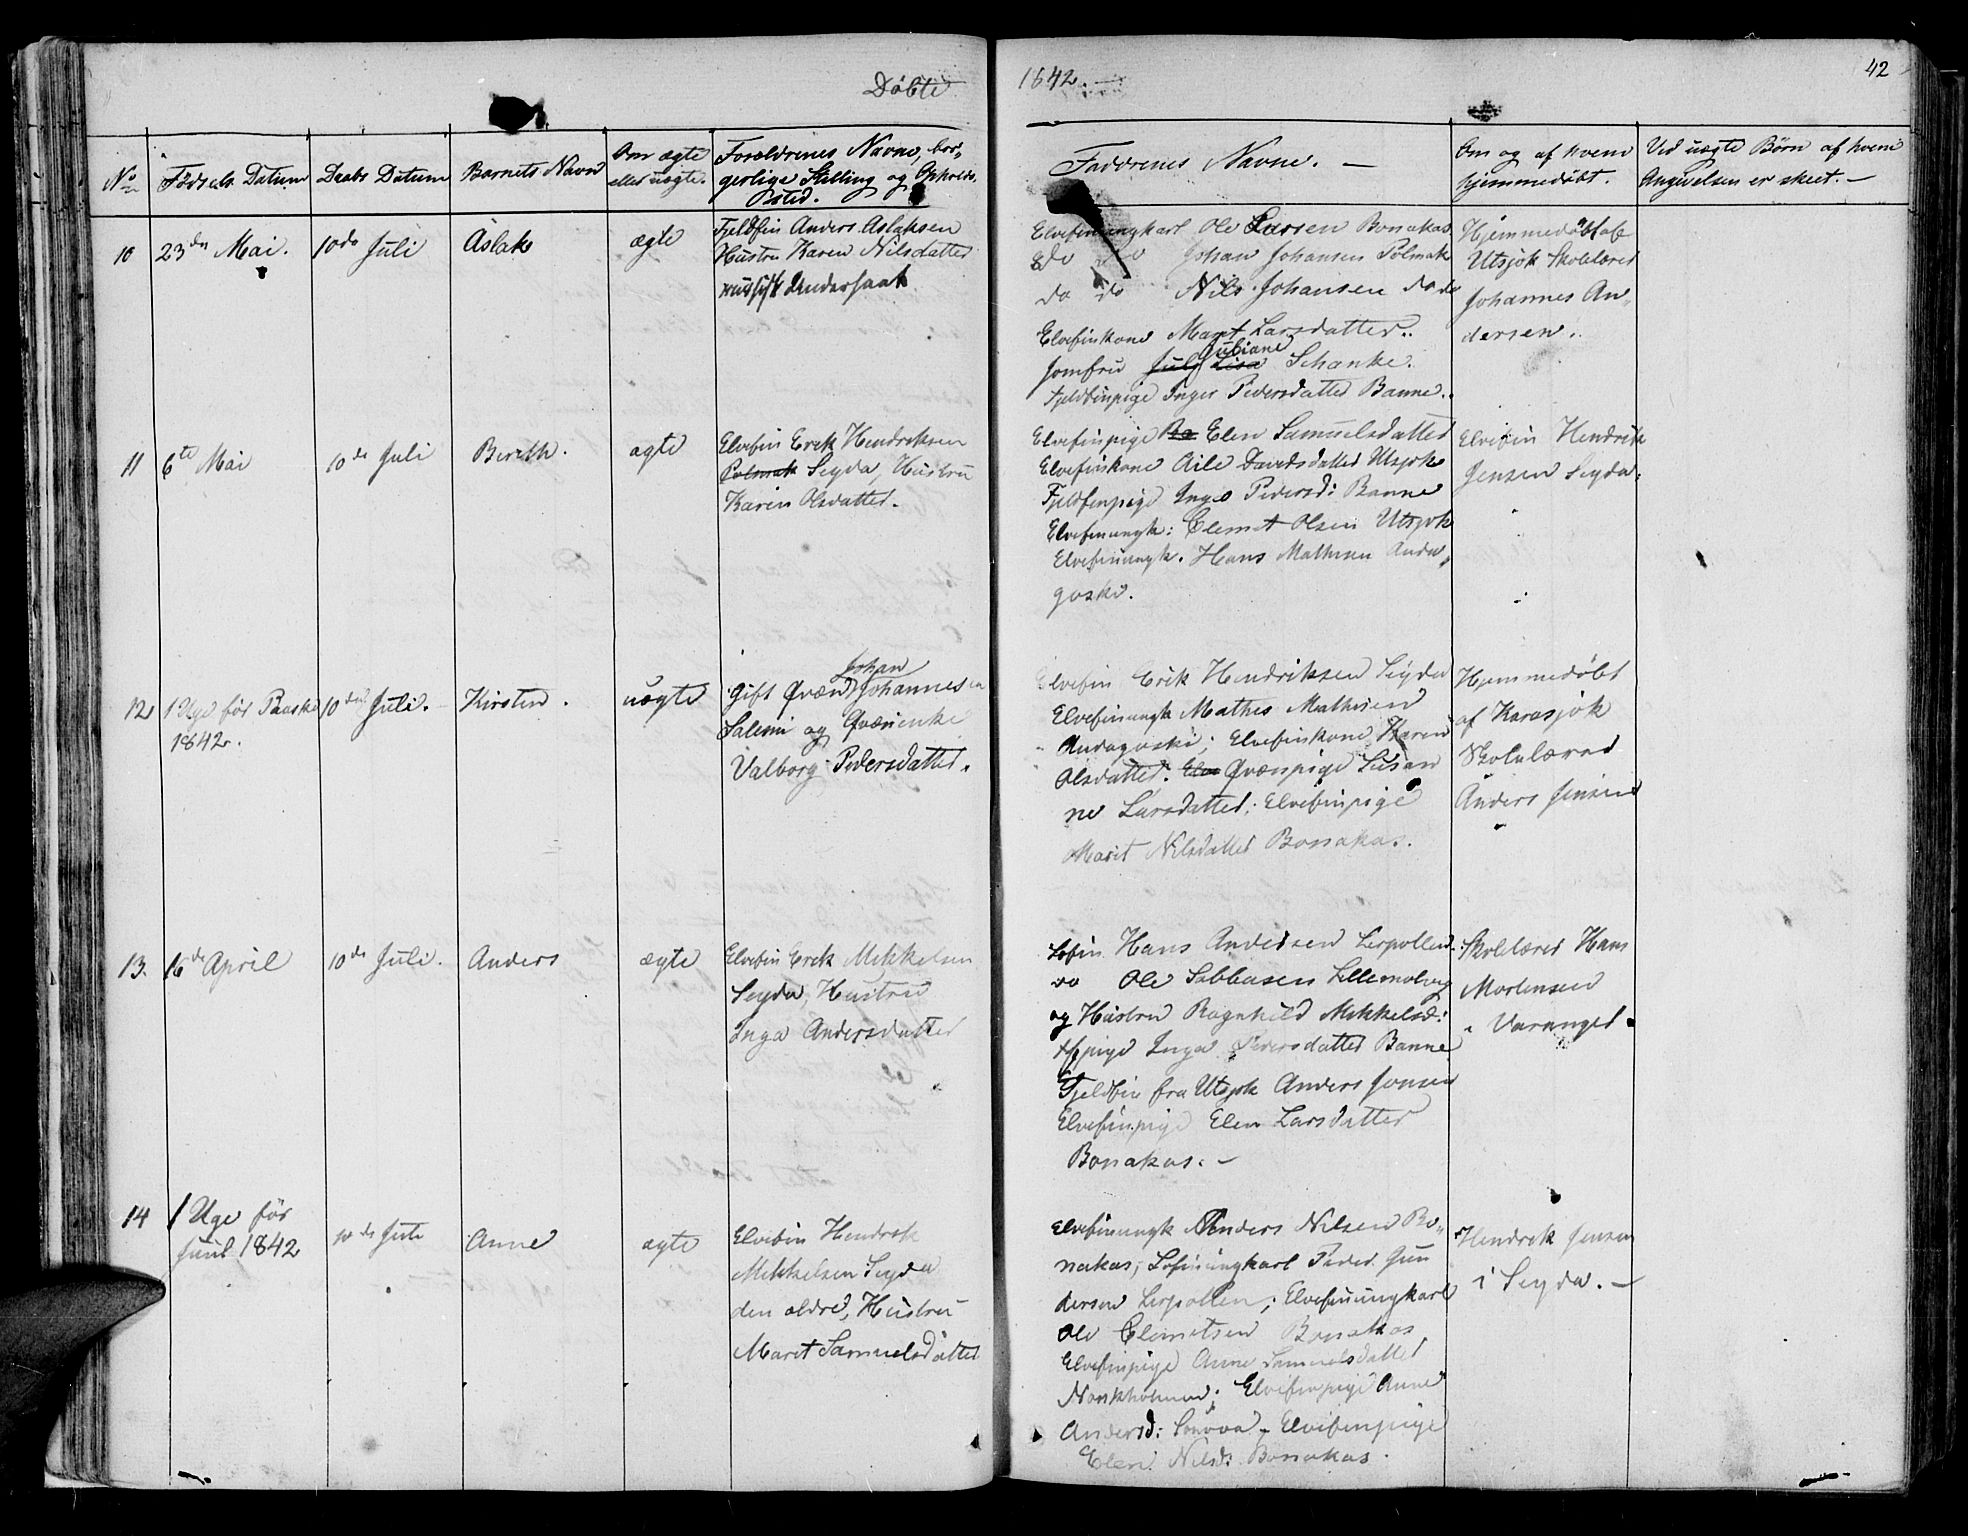 Döbte
1842.
42
No
Födsels Datum
Daabs Datum
Barnets Navn
Om ægte
eller uægte.
Forældrenes Navne, bor-
gerlige Stilling og Opholds-
sted.
Faddrenes Navne. —
Om og af hvem
hjemmedøbt.
Ved uægte Børn af hvem
Angivelsen er skeet. —
10
23de Mai.
10de Juli
Aslak
ægte
Fjeldfin Anders Aslaksen
Hustru Karen Nilsdatter
russisk Undersaat
Elvefinungkarl Ole Larsen Bonakas
do do Johan Johansen Polmak
do do Nils Johansen do do
Elvefinkone Maret Larsdatter.
Jomfru Juliane Schanke.
Fjeldfinpige Inger Pedersdatter Banne.
Hjemmedöbt af
Utsjok Skolelærer
Johannes An-
dersen.
11
6te Mai
10de Juli
Bereth.
ægte
Elvefin Erik Hendriksen
Polmak Seyda, Hustru
Karen Olsdatter.
Elvefinpige Elen Samuelsdatter
Elvefinkone Aile Davidsdatter Utsjok
Fjeldfinpige Inge Pedersd: Banne
Elvefinungk: Clemet Olsen Utsjok
Elvefinungk. Hans Mathisen Anda-
goski.
Elvefin Hendrik
Jensen Seyda.
12
1 Uge för Paaske
1842.
10de Juli.
Kirsten.
uægte
Johan
Gift Qvæn Johannesen
Salemi og Qvænenke
Valborg Pedersdatter.
Elvefin Erik Hendriksen Seyda
Elvefinungk Mathis Mathisen
Andagoski; Elvefinkone Karen
Olsdatter. Qvænpige Susan
ne Larsdatter; Elvefinpige
Marit Nilsdatter Bonakas.
Hjemmedöbt
af Karasjok
Skolelærer
Anders Jensen
13.
16de April
10de Juli.
Anders
ægte
Elvefin Erik Mikkelsen
Seyda, Hustru
Inga Andersdatter
Söfin Hans Andersen Leepollen.
do Ole Sabbasen Lillemolvig
og Hustru Ragnhild Mikkelsd:
Ffpige Inga Pedersdatter Banne
Fjeldfin fra Utsjok Anders Jonsen
Elvefinpige Elen Larsdatter
Bonakas. —
Skolelærer Hans
Mortensen
i Varanger.
14
1 Uge för
Juul 1842
10de Juli
Anne
ægte
Elvefin Hendrik
Mikkelsen Seyda
den ældre, Hustru
Maret Samuelsdatter
Elvefinungk Anders Nilsen Bo-
nakas; Söfinungkarl Peder Gun
dersen Leepollen; Elvefinungkarl
Ole Clemetsen Bonakas
Elvefinpige Anne Samuelsdatter
Norskholmen; Elvefinpige Anne
Andersd: Elvefinpige
Elen Nilsd: Bonakas.
Hendrik Jensen
i Seyda. —